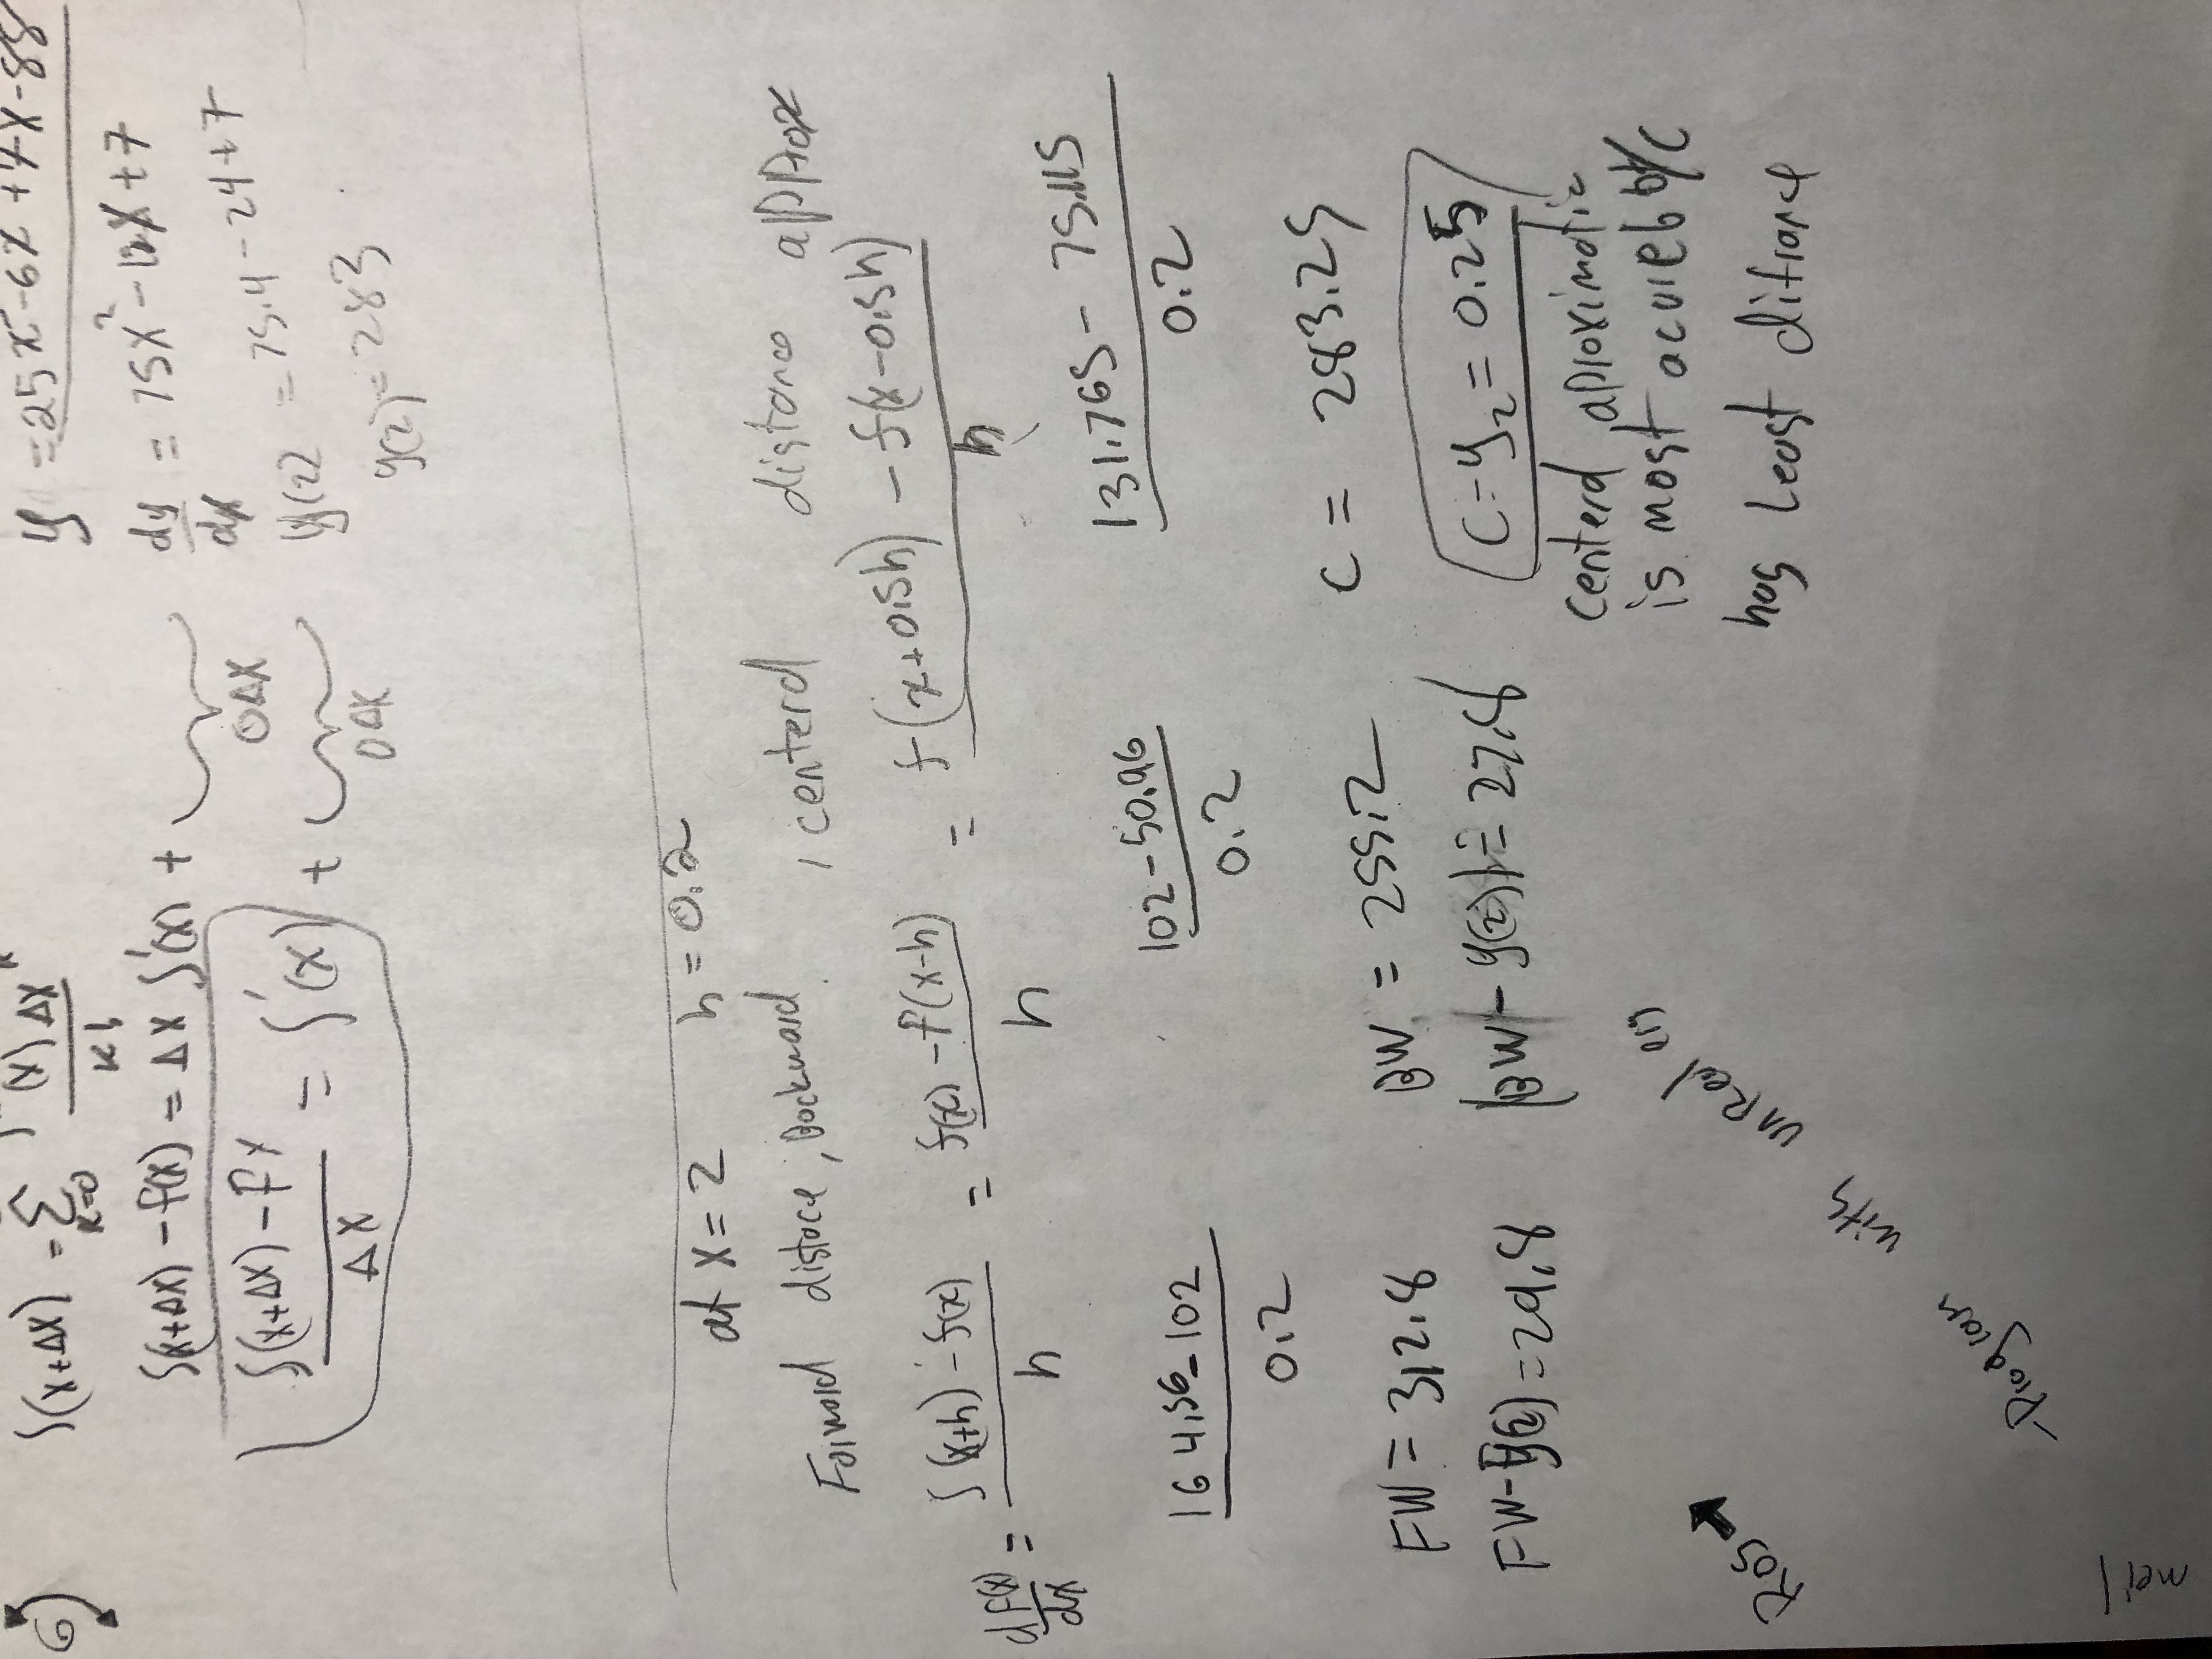 6)
f(x+Δx) = Σ k=0 (x) Δx^k / k!
y = 25x - 6x + 7x - 88
f(x+Δx) - f(x) = Δx f'(x) + OΔX
dy/dx = 75x² - 12x + 7
f(x+Δx) - fx / Δx = f'(x) + OΔX
y(2) = 75.4 - 24 + 7
y(2) = 283
at x = 2 h = 0.2
Forword distace, Backward, centerd distance approx
df(x)/dx = f(x+h) - f(x) / h = f(x) - f(x-h) / h = f(x+0.5h) - f(x-0.5h) / h
164.56 - 102 / 0.2
102 - 50.96 / 0.2
131.765 - 75.115 / 0.2
FW = 312.8
BW = 255.2
C = 283.25
FW - y(2) = 29.8
|BW - y(2)| = 27.8
C - y2 = 0.25
centerd aproximatic
is most b/c
has Least
Ros →
-Program with unReal eng